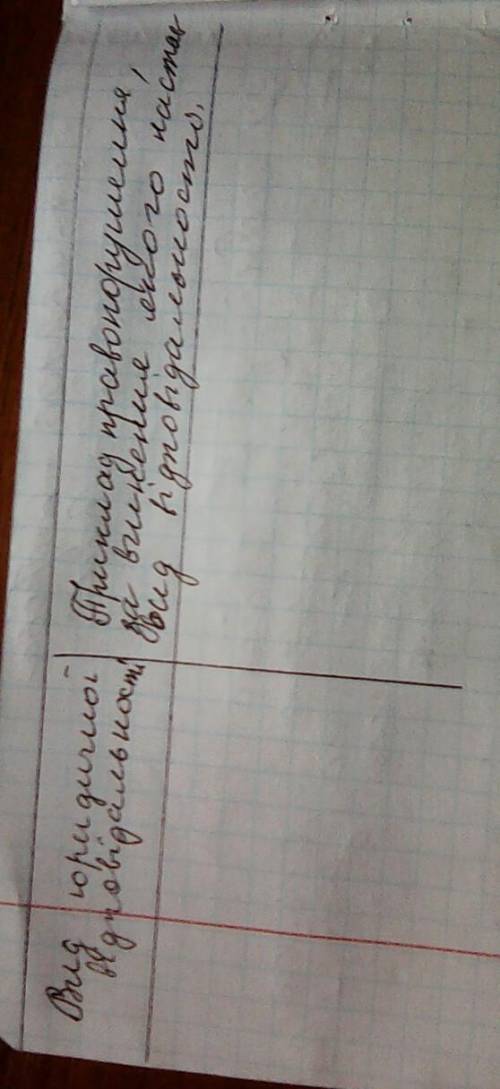 Вид юридичної
відповідальності
Приклад правопорушення,
за вчинення якого настає
вид відповідальності.